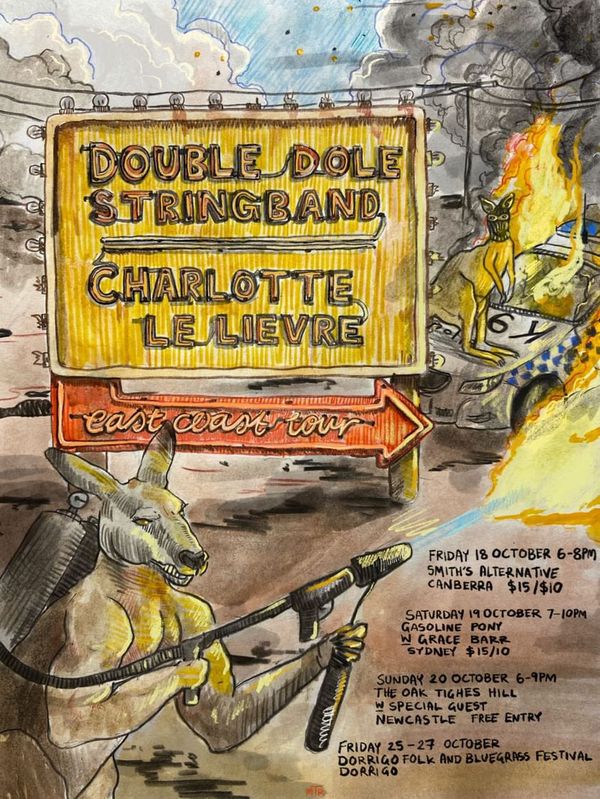 DOUBLE DOLE
STRINGBAND
CHARLOTTE
LE LIEVRE
east coast tour
FRIDAY 18 OCTOBER 6-8PM
SMITH'S ALTERNATIVE
CANBERRA $15/$10
SATURDAY 19 OCTOBER 7-10PM
GASOLINE PONY
W GRACE BARR
SYDNEY $15/10
SUNDAY 20 OCTOBER 6-9PM
THE OAK TIGHES HILL
W SPECIAL GUEST
NEWCASTLE FREE ENTRY
FRIDAY 25-27 OCTOBER
DORRIGO FOLK AND BLUEGRASS FESTIVAL
DORRIGO